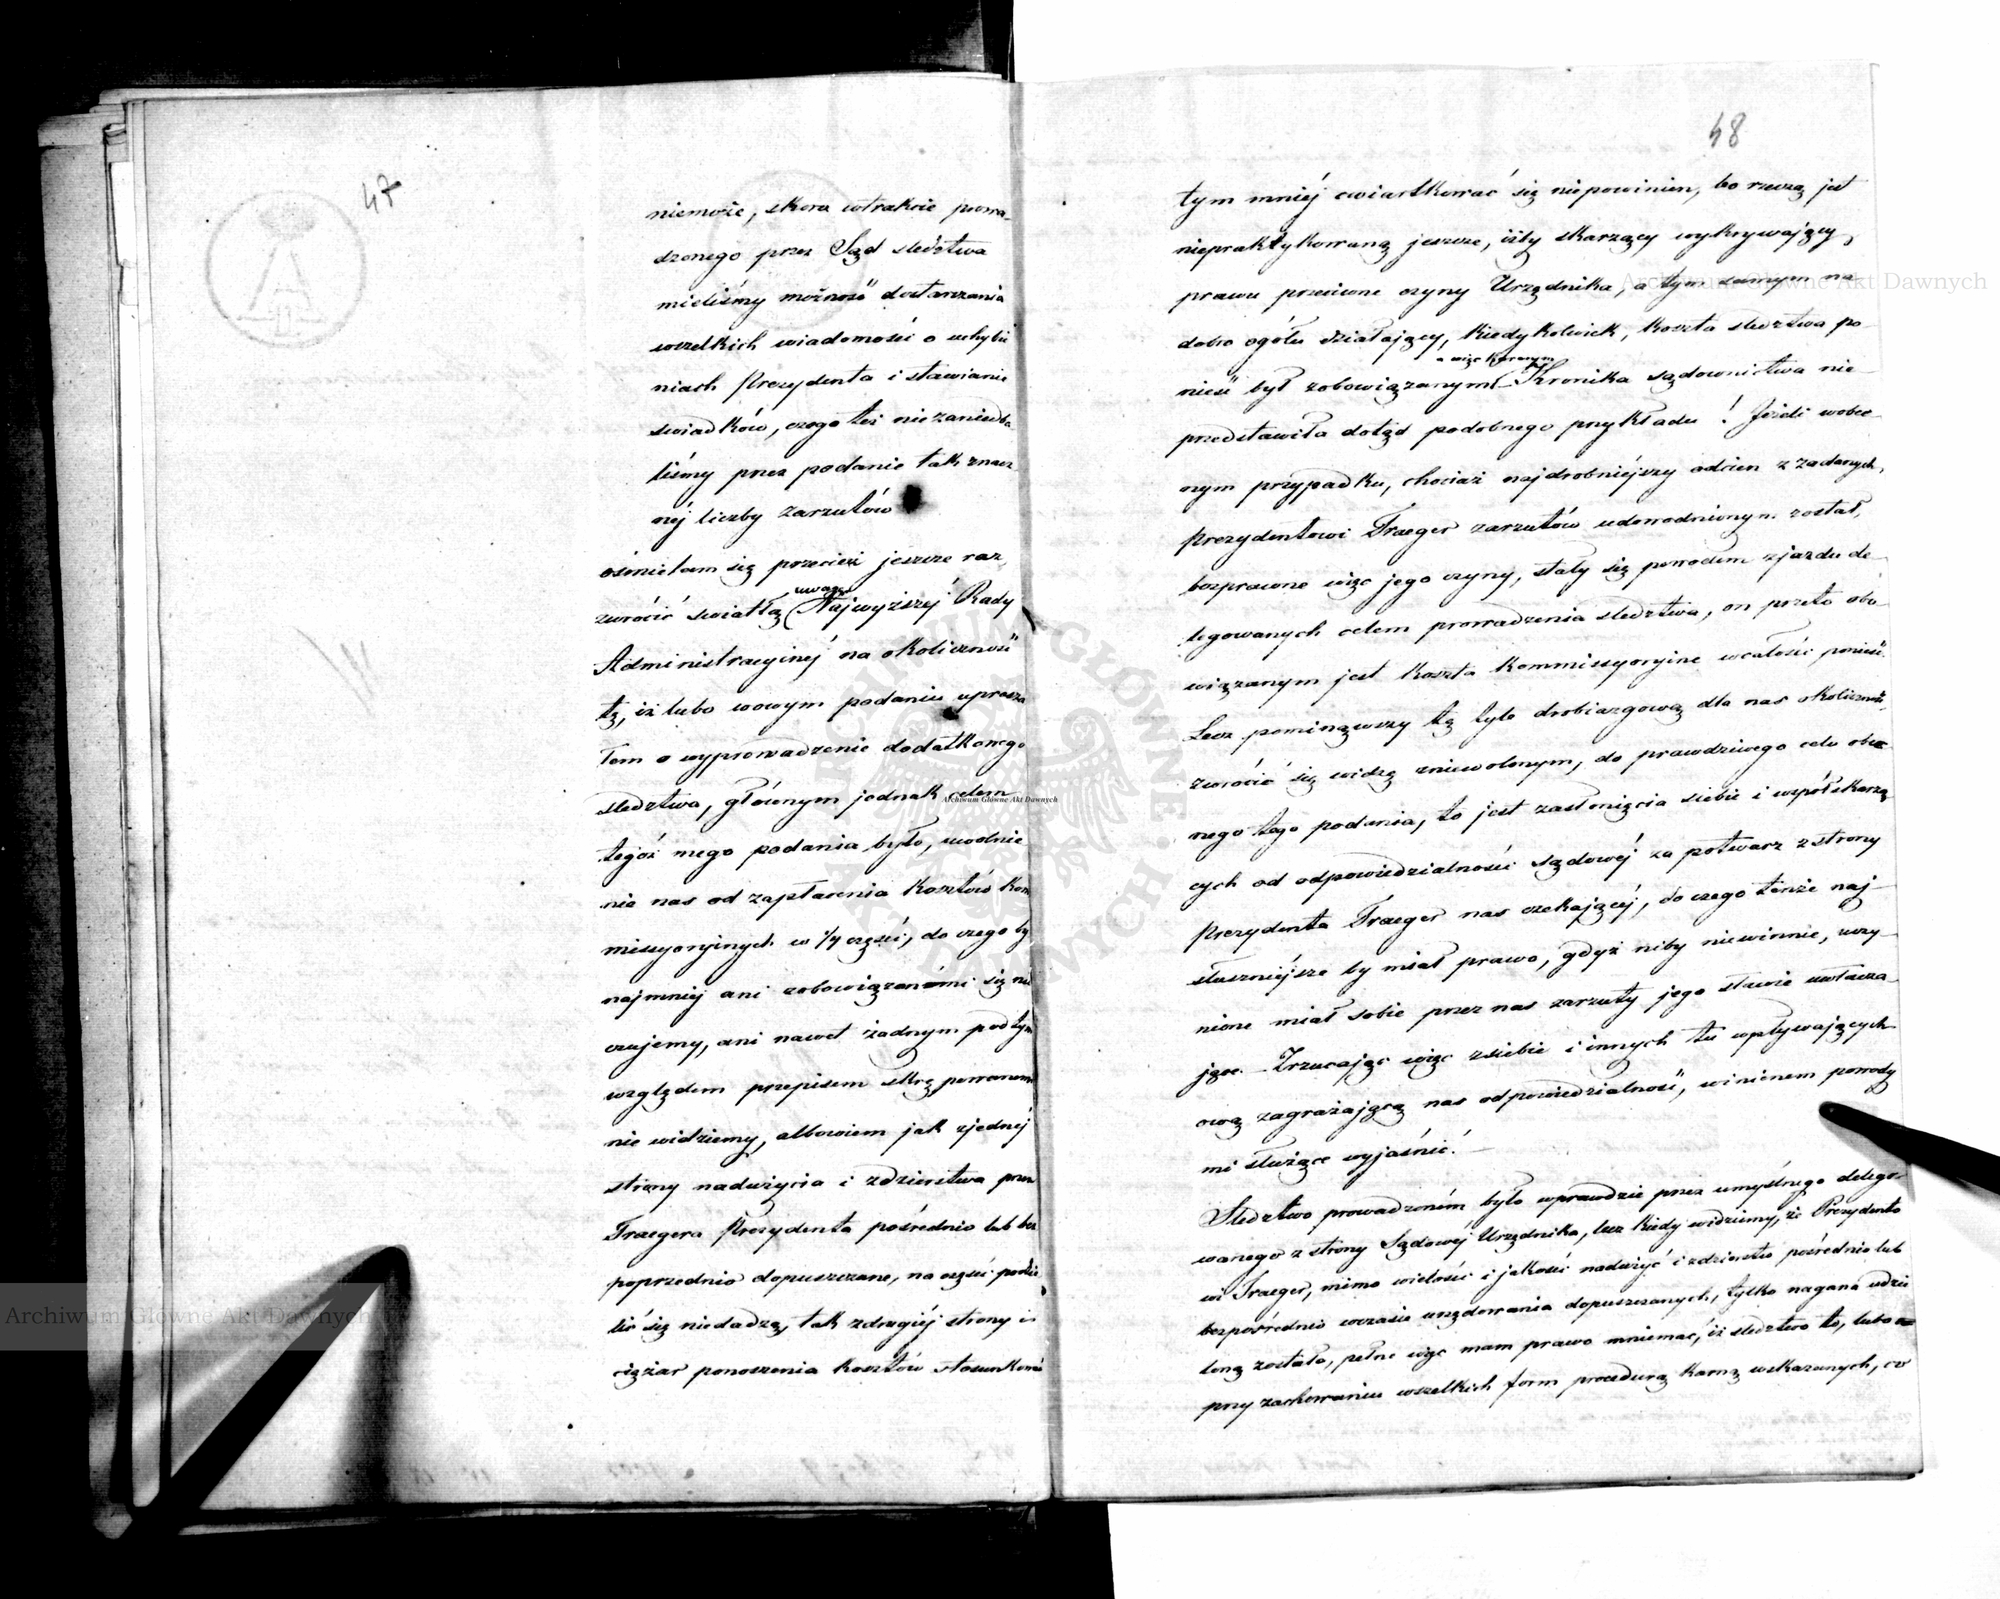 47
niemoże, skoro wtrakcie prowa-
dzonego przez Sąd sledztwa
mieliśmy możność dostarczania
wszelkich wiadomości o uchybie
niach Prezydenta i stawianie
swiadków, czego też nie zaniedba
liśmy przez podanie tak znacz
néj liczby zarzutów
ośmielam się przecież jeszcze raz,
uwagę
zwrócić swiatłą Najwyższéj Rady
Administracyinéj na okoliczność
tę, iż lubo wowym podaniu uprasza
łem o wyprowadzenie dodatkowego
sledztwa, głównym jednak celem
tegóż mego podania było, uwolnie
nie nas od zapłacenia kosztów Kom
missyoryinych w 1/4 części, do czego by
najmniéj ani zobowiązanémi się nie
czujemy, ani nawet żadnym podtym
względem przepisem skrępowanemi
nie widziemy, albowiem jak zjednéj
strony nadużycia i zdzierstwa przez
Traegera Prezydenta pośrednio lub bez
poprzednio dopuszczane, na część podzie
lić się niedadzą, tak zdrugiéj strony i
ciężar ponoszenia kosztów stosunkowo
48
tym mniéj cwiartkować się niepowinien, bo rzeczą jest
niepraktykowaną jeszcze, iżby skarzący wykrywający,
prawu przeciwne czyny Urzędnika, a tym samym na
dobro ogółu działający, kiedykolwiek, koszta sledztwa po-
a więc karanym
nieść był zobowiązanym Kronika sądownictwa nie-
przedstawiła dotąd podobnego przykładu! Jeżeli wobec
nym przypadku, chociaż najdrobniejszy odcien z zadanych,
prezydentowi Traeger zarzutów udowodnionym został,
bezprawne więc jego czyny, stały się powodem zjazdu de-
legowanych celem prowadzenia sledztwa, on przeto obo-
wiązanym jest koszta kommissyoryine wcałości ponieść.
Lecz pominąwszy tę tyle drobiazgową dla nas okoliczność,
zwrócić się widzę zniewolonym, do prawdziwego celu obec
nego tego podania, to jest zasłonięcia siebie i współskarżą
cych od odpowiedzialności sądowéj za potwarz z strony
prezydenta Traeger nas czekającéj, do czego tenże naj-
słuszniéjsze by miał prawo, gdyż niby niewinnie, uczy-
nione miał sobie przez nas zarzuty jego sławie uwłacza-
jące. – Zrzucając więc zsiebie i innych tu wpływających
ową zagrażającą nas odpowiedzialność, winienem powody
mi służące wyjaśnić. –
Sledztwo prowadzoném było wprawdzie przez umyślnego delego-
wanego z strony Sądowéj Urzędnika, lecz kiedy widziemy, że Prezydento
wi Traeger, mimo wielości i jakości nadużyć i zdzierstw pośrednio lub
bezpośrednio wczasie urzędowania dopuszczanych, tylko nagana udzie
loną została, pełne więc mam prawo mniemać, iż sledztwo to, lubo
przy zachowaniu wszelkich form procedurą karną wskazanych, co
Archiwum Główne Akt Dawnych
Archiwum Główne Akt Dawnych
Archiwum Główne Akt Dawnych
ARCHIWUM GŁÓWNE AKT DAWNYCH